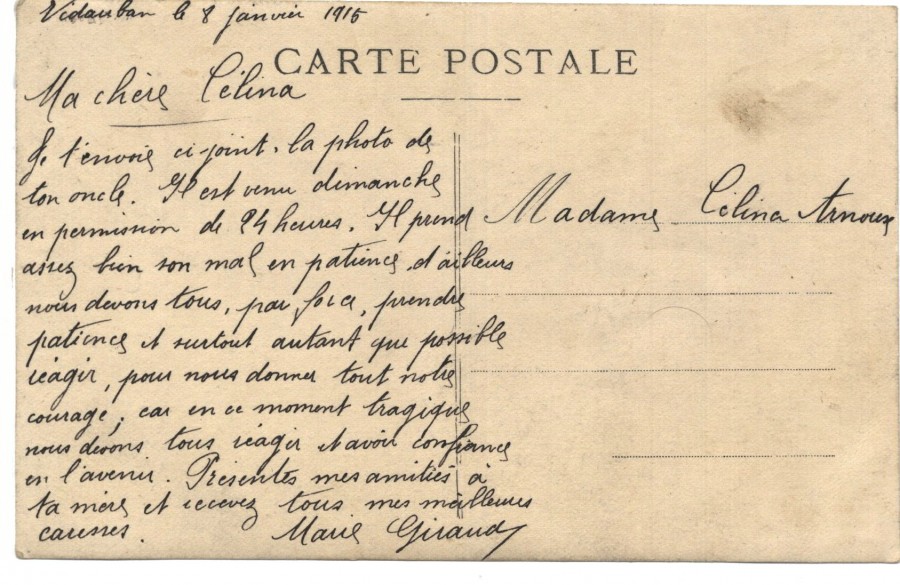 Vidauban le 8 janvier 1915
CARTE POSTALE
Ma chère Célina
Je t'envoie ci-joint la photo de
ton oncle. Il est venu dimanche
en permission de 24 heures. Il prend
assez bien son mal en patience, d'ailleurs
nous devons tous, par force, prendre
patience et surtout autant que possible
réagir, pour nous donner tout notre
courage, car en ce moment tragique
nous devons tous réagir et avoir confiance
en l'avenir. Présentes mes amitiés à
ta mère et recevez tous mes meilleures
caresses. Marie Giraud
Madame Célina Arnoux